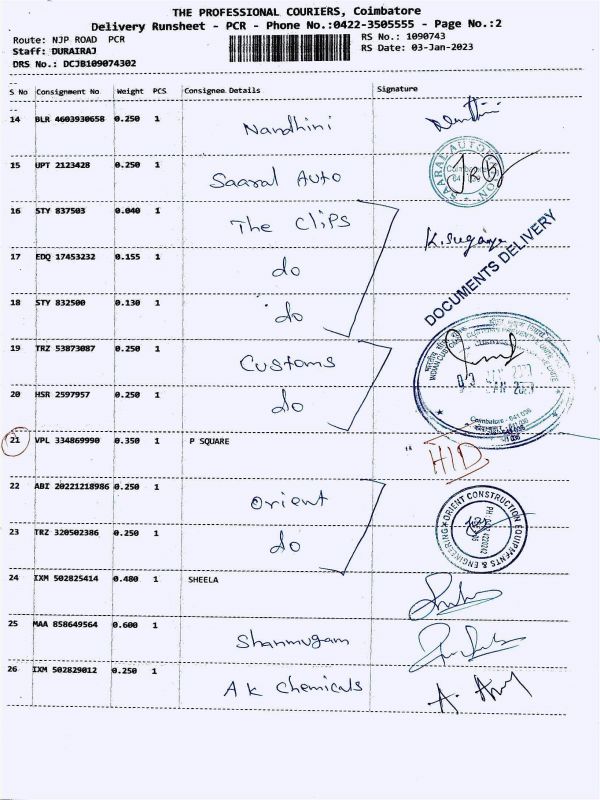 THE PROFESSIONAL COURIERS, Coimbatore
Delivery Runsheet - PCR - Phone No.:0422-3505555 - Page No.:2
Route: NJP ROAD PCR
RS No.: 1090743
Staff: DURAIRAJ
RS Date: 03-Jan-2023
DRS No.: DCJB109074302
S No Consignment No Weight PCS Consignee Details Signature
14 BLR 4603930658 0.250 1 Nandhini
15 UPT 2123428 0.250 1 Saaral Auto
SAARAL AUTOMATION
16 STY 837503 0.040 1 The Clips
K. Suganya
17 EDQ 17453232 0.155 1 do
DOCUMENTS DELIVERY
18 STY 832500 0.130 1 do
19 TRZ 53873087 0.250 1 Customs
20 HSR 2597957 0.250 1 do
Coimbatore - 641 036
21 VPL 334869990 0.350 1 P SQUARE
HID
22 ABI 20221218986 0.250 1 Orient
ORIENT CONSTRUCTION EQUIPMENTS & ENGINEERING
23 TRZ 320502386 0.250 1 do
24 IXM 502825414 0.480 1 SHEELA
25 MAA 858649564 0.600 1 Shanmugam
26 IXM 502829012 0.250 1 A K Chemicals